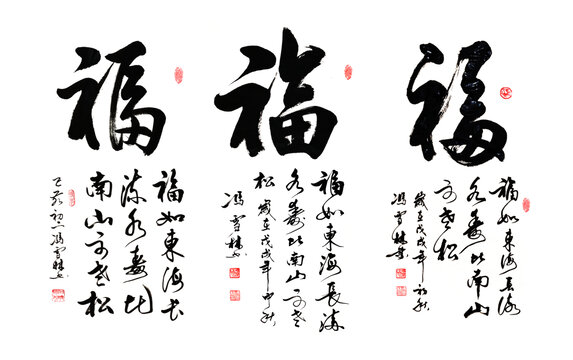 福
福如東海长
流水壽比
南山不老松
馮雪林书
福
福如東海長流
水壽比南山不老
松 歲在戊戌年中秋
馮雪林书
福
福如東海長流
水壽比南山
不老松
歲在戊戌年初秋
馮雪林书